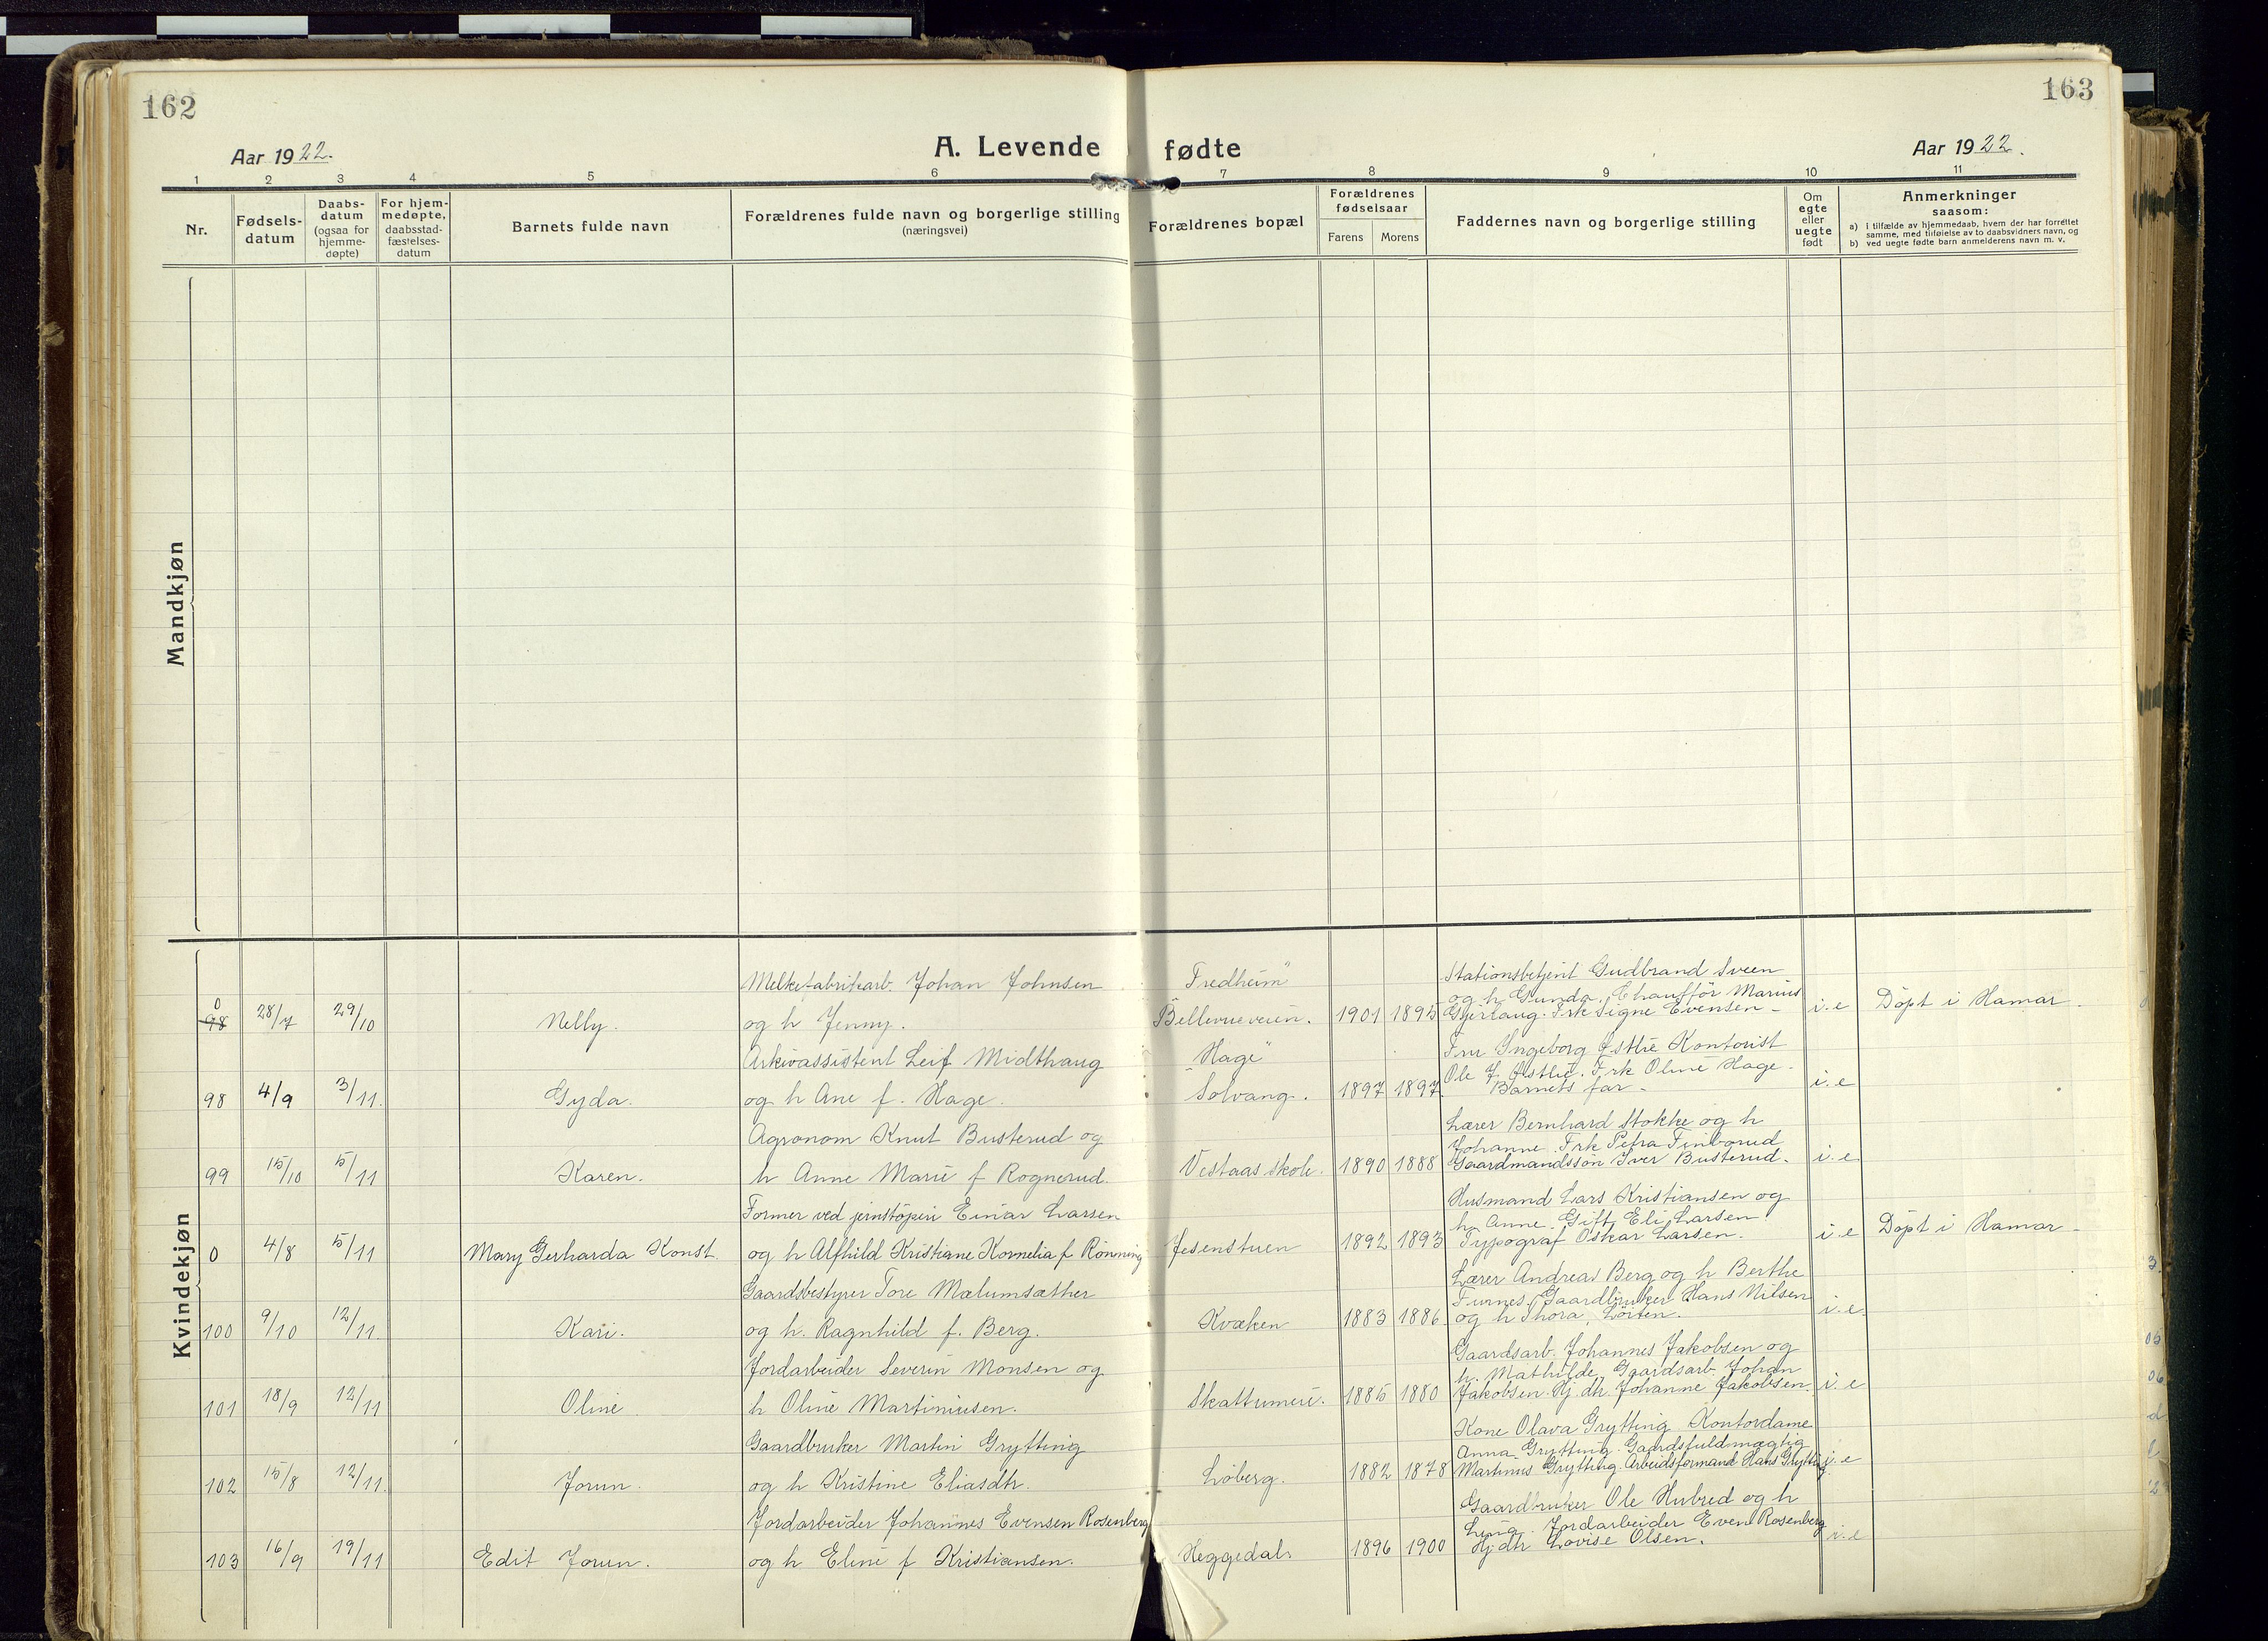 162
163
Aar 1922.
A. Levende fødte
Aar 1922.
1 2 3 4 5 6 7 8 9 10 11
Nr.
Fødsels-
datum
Daabs-
datum
(ogsaa for
hjemme-
døpte)
For hjem-
medøpte,
daabsstad-
fæstelses-
datum
Barnets fulde navn
Forældrenes fulde navn og borgerlige stilling
(næringsvei)
Forældrenes bopæl
Forældrenes
fødselsaar
Farens Morens
Faddernes navn og borgerlige stilling
Om
egte
eller
uegte
født
Anmerkninger
saasom:
a) i tilfælde av hjemmedaab, hvem der har forrettet
samme, med tilføielse av to daabsvidners navn, og
b) ved uegte fødte barn anmelderens navn m. v.
Mandkjøn
Kvindekjøn
0
98 28/7 29/10 Nelly.
Melkefabrikarb. Johan Johnsen
og h Jenny.
Fredheim"
Bellevueveien. 1901 1895
Stationsbetjent Gudbrand Sveen
og h Gunda, Chauffør Marius
Gjerlaug. Frk Signe Evensen -
i. e Döpt i Hamar.
98 4/9 3/11. Gyda.
Arkivassistent Leif Midthaug
og h Ane f. Hage.
Hage"
Solvang. 1897 1897.
Fru Ingeborg Østlie Kontorist
Ole J. Østlie. Frk Oline Hage.
Barnets far.
i. e
99 15/10 5/11 Karen.
Agronom Knut Busterud og
h Anne Marie f Rognerud.
Vestaas skole. 1890 1888
Lærer Bernhard Stokke og h
Johanne. Frk Petra Finborud
Gaardmandssön Iver Busterud.
i. e
0 4/8 5/11 Mary Gerharda Konst.
Former ved jernstöperi Einar Larsen
og h Alfhild Kristiane Kornelia f Rönning
Jesenstuen 1892 1893
Husmand Lars Kristiansen og
h. Anne. Gift Eli Larsen.
Typograf Oskar Larsen.
i. e Döpt i Hamar
100 9/10 12/11. Kari.
Gaardsbestyrer Tore Mælumsæther
og h. Ragnhild f. Berg.
Kvæken 1883 1886.
Lærer Andreas Berg og h Berthe
Furnes, Gaardbruker Hans Nilsen
og h Thora, Löiten.
i. e.
101 18/9 12/11 Oline
Jordarbeider Severin Monsen og
h Oline Martiniusen.
Skattumeie. 1885 1880
Gaardsarb. Johannes Jakobsen og
h. Mathilde, Gaardsarb. Johan
Jakobsen. Hj.dtr Johanne Jakobsen.
i. e
102 15/8 12/11. Jorun.
Gaardbruker Martin Grytting
og h Kristine Eliasdtr.
Løberg. 1882 1878
Kone Olava Grytting Kontordame
Anna Grytting. Gaardsfuldmægtig
Martinus Grytting. Arbeidsformand Hans Grytting
i. e
103 16/9 19/11 Edit Jorun.
Jordarbeider Johannes Evensen Rosenberg
og h Eline f Kristiansen.
Heggedal. 1896 1900
Gaardbruker Ole Hubred og h
Lina. Jordarbeider Even Rosenberg
Hj.dtr Lovise Olsen.
i. e